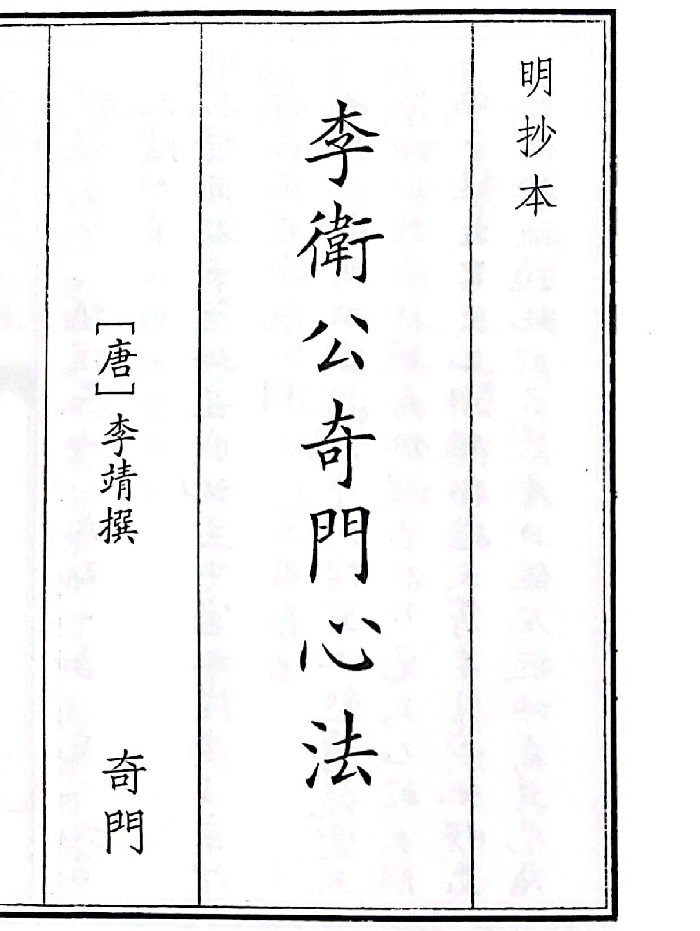 明抄本
李衛公奇門心法
［唐］李靖撰
奇門